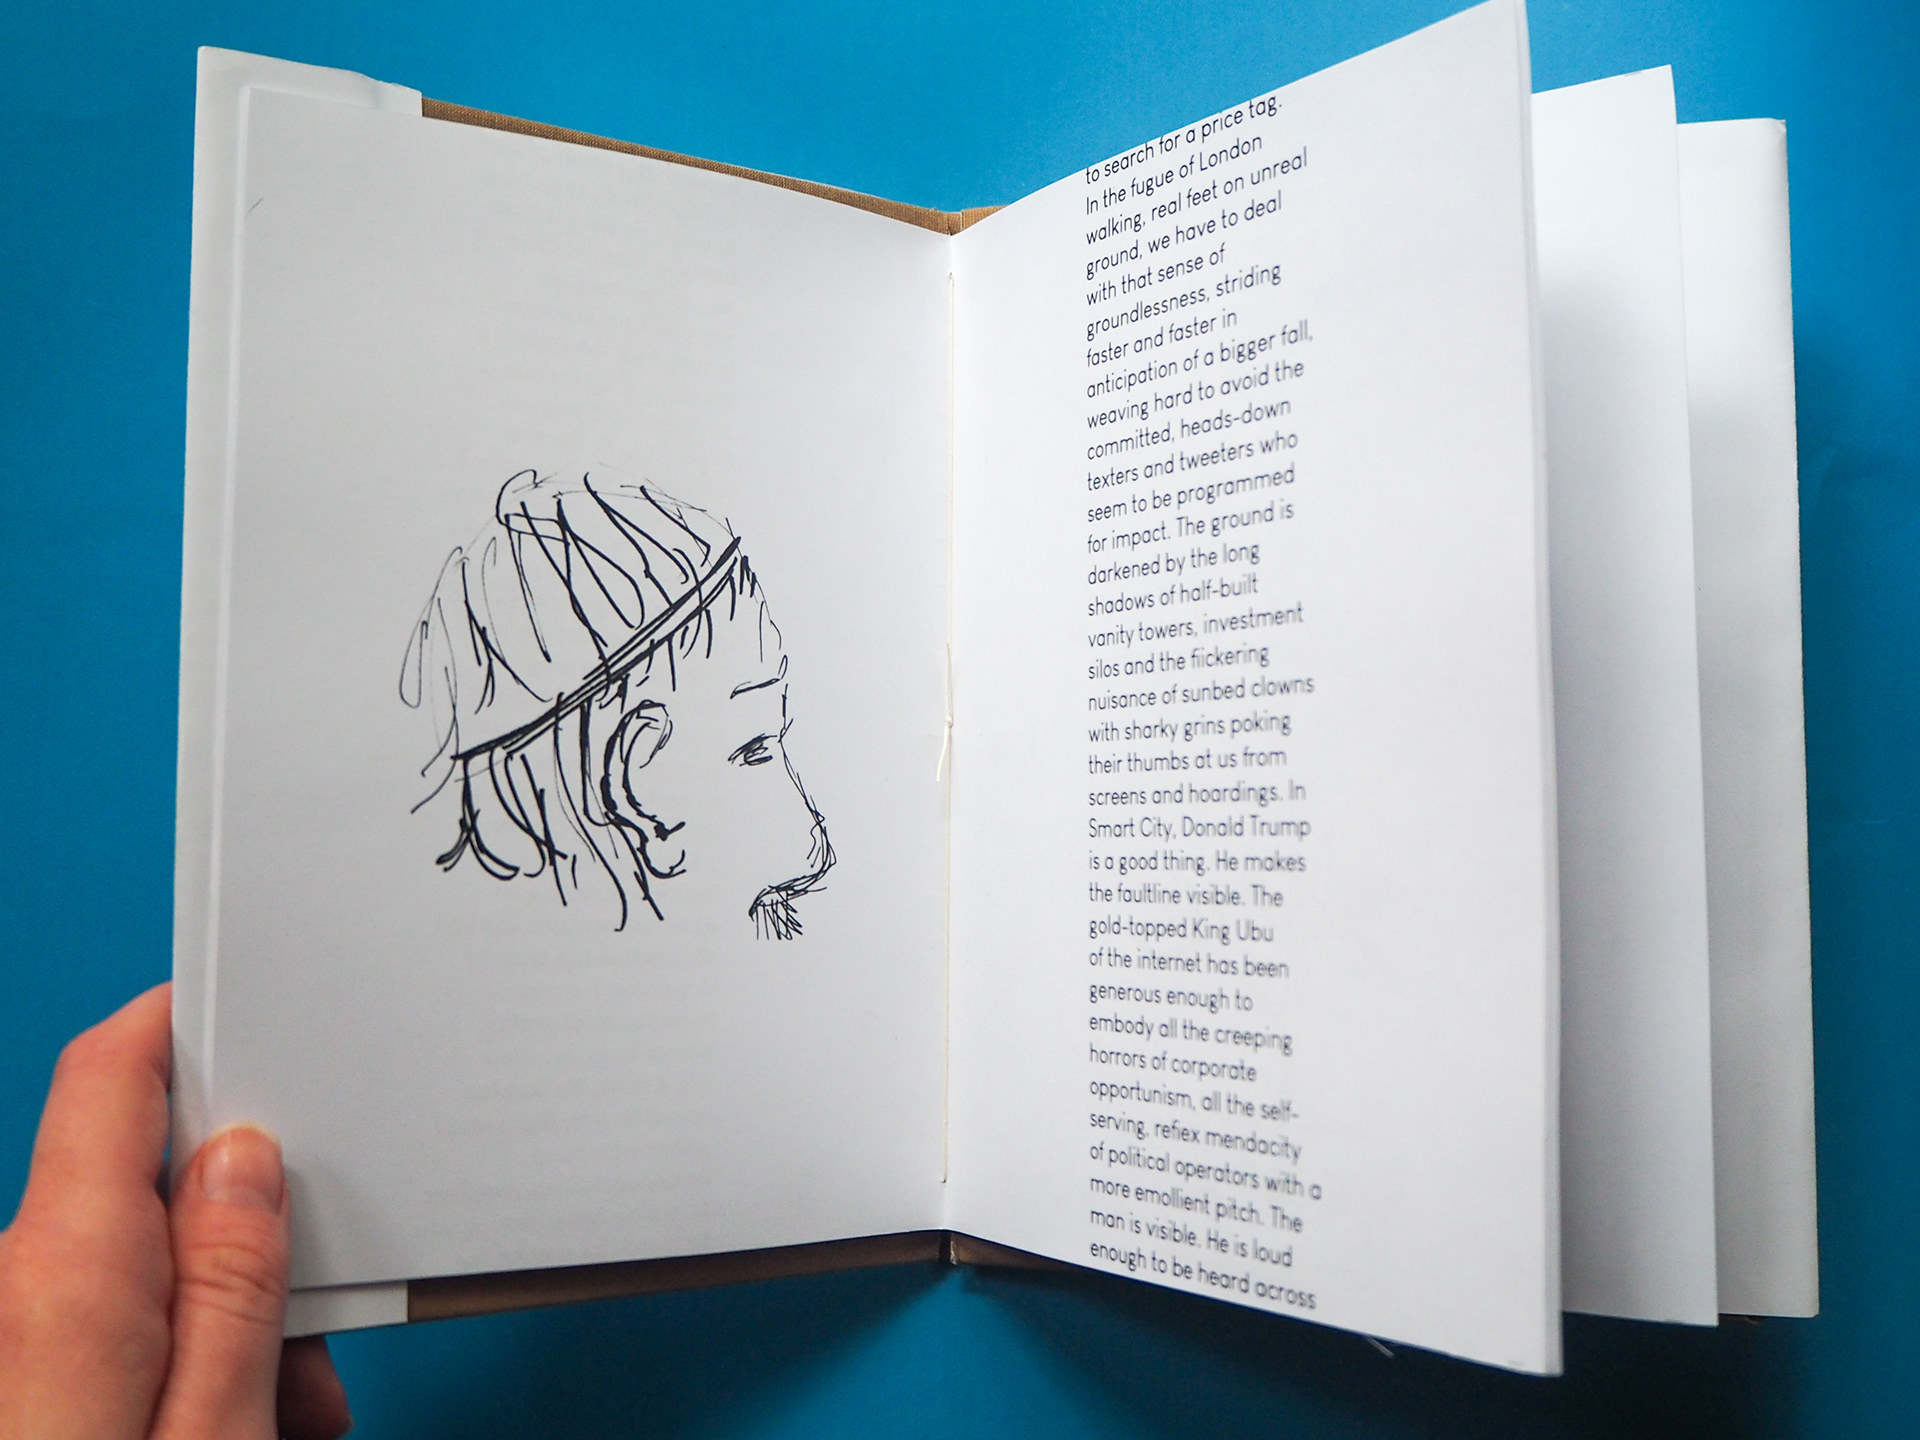 to search for a price tag.
In the fugue of London
walking, real feet on unreal
ground, we have to deal
with that sense of
groundlessness, striding
faster and faster in
anticipation of a bigger fall,
weaving hard to avoid the
committed, heads-down
texters and tweeters who
seem to be programmed
for impact. The ground is
darkened by the long
shadows of half-built
vanity towers, investment
silos and the fiickering
nuisance of sunbed clowns
with sharky grins poking
their thumbs at us from
screens and hoardings. In
Smart City, Donald Trump
is a good thing. He makes
the faultline visible. The
gold-topped King Ubu
of the internet has been
generous enough to
embody all the creeping
horrors of corporate
opportunism, all the self-
serving, refiex mendacity
of political operators with a
more emollient pitch. The
man is visible. He is loud
enough to be heard across